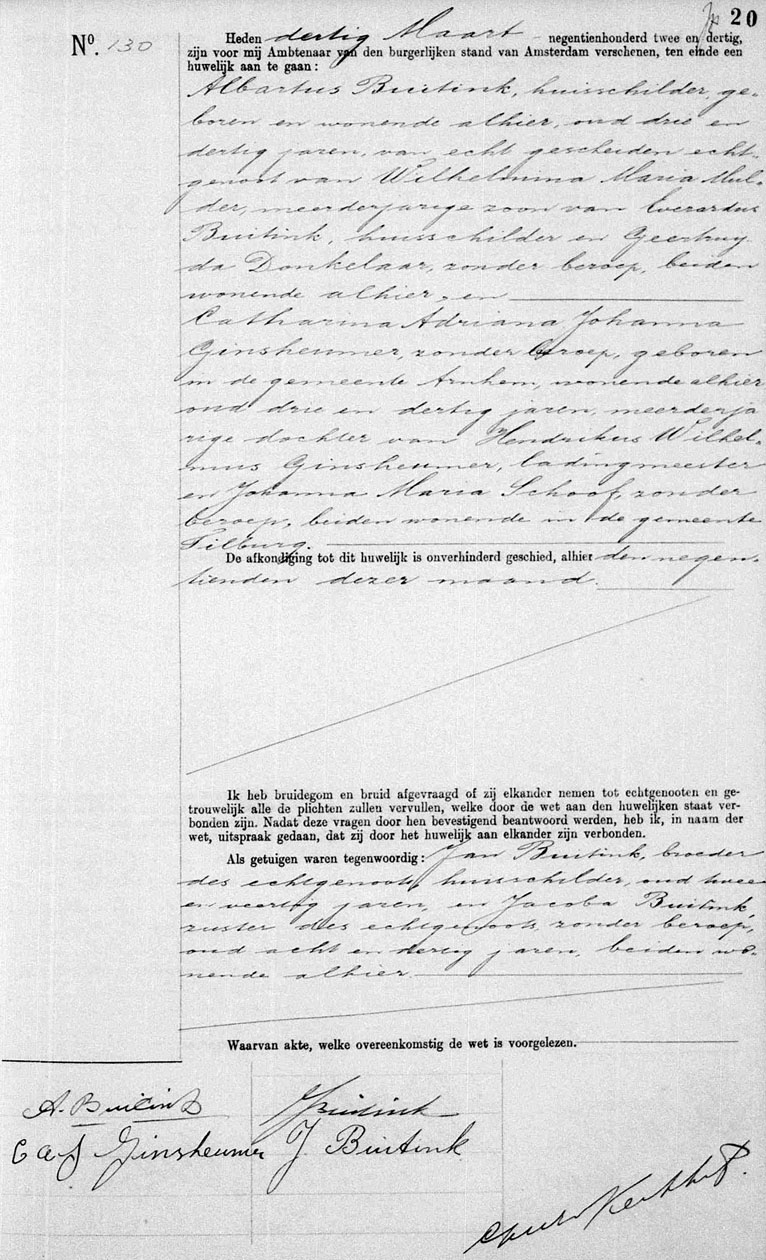 20
Nº. 130
Heden dertig Maart negentienhonderd twee en dertig,
zijn voor mij Ambtenaar van den burgerlijken stand van Amsterdam verschenen, ten einde een
huwelijk aan te gaan:
Albartus Buitink, huisschilder, ge-
boren en wonende alhier, oud drie en
dertig jaren, van echt gescheiden echt-
genoot van Wilhelmina Maria Mul-
der, meerderjarige zoon van Everardus
Buitink, huisschilder en Geertruy
da Donkelaar, zonder beroep, beiden
wonende alhier, en
Catharina Adriana Johanna
Ginsheumer, zonder beroep, geboren
in de gemeente Arnhem, wonende alhier
oud drie en dertig jaren, meerderja
rige dochter van Hendrikus Wilhel-
mus Ginsheumer, ladingmeester
en Johanna Maria Schoof, zonder
beroep, beiden wonende in de gemeente
Tilburg.
De afkondiging tot dit huwelijk is onverhinderd geschied, alhier den negen-
tienden dezer maand.
Ik heb bruidegom en bruid afgevraagd of zij elkander nemen tot echtgenooten en ge-
trouwelijk alle de plichten zullen vervullen, welke door de wet aan den huwelijken staat ver-
bonden zijn. Nadat deze vragen door hen bevestigend beantwoord werden, heb ik, in naam der
wet, uitspraak gedaan, dat zij door het huwelijk aan elkander zijn verbonden.
Als getuigen waren tegenwoordig: Jan Buitink, broeder
des echtgenoots, huisschilder, oud twee
en veertig jaren, en Jacoba Buitink,
zuster des echtgenoots, zonder beroep,
oud acht en dertig jaren, beiden wo-
nende alhier.
Waarvan akte, welke overeenkomstig de wet is voorgelezen.
A. Buitink
J Buitink
C A J Ginsheumer
J. Buitink